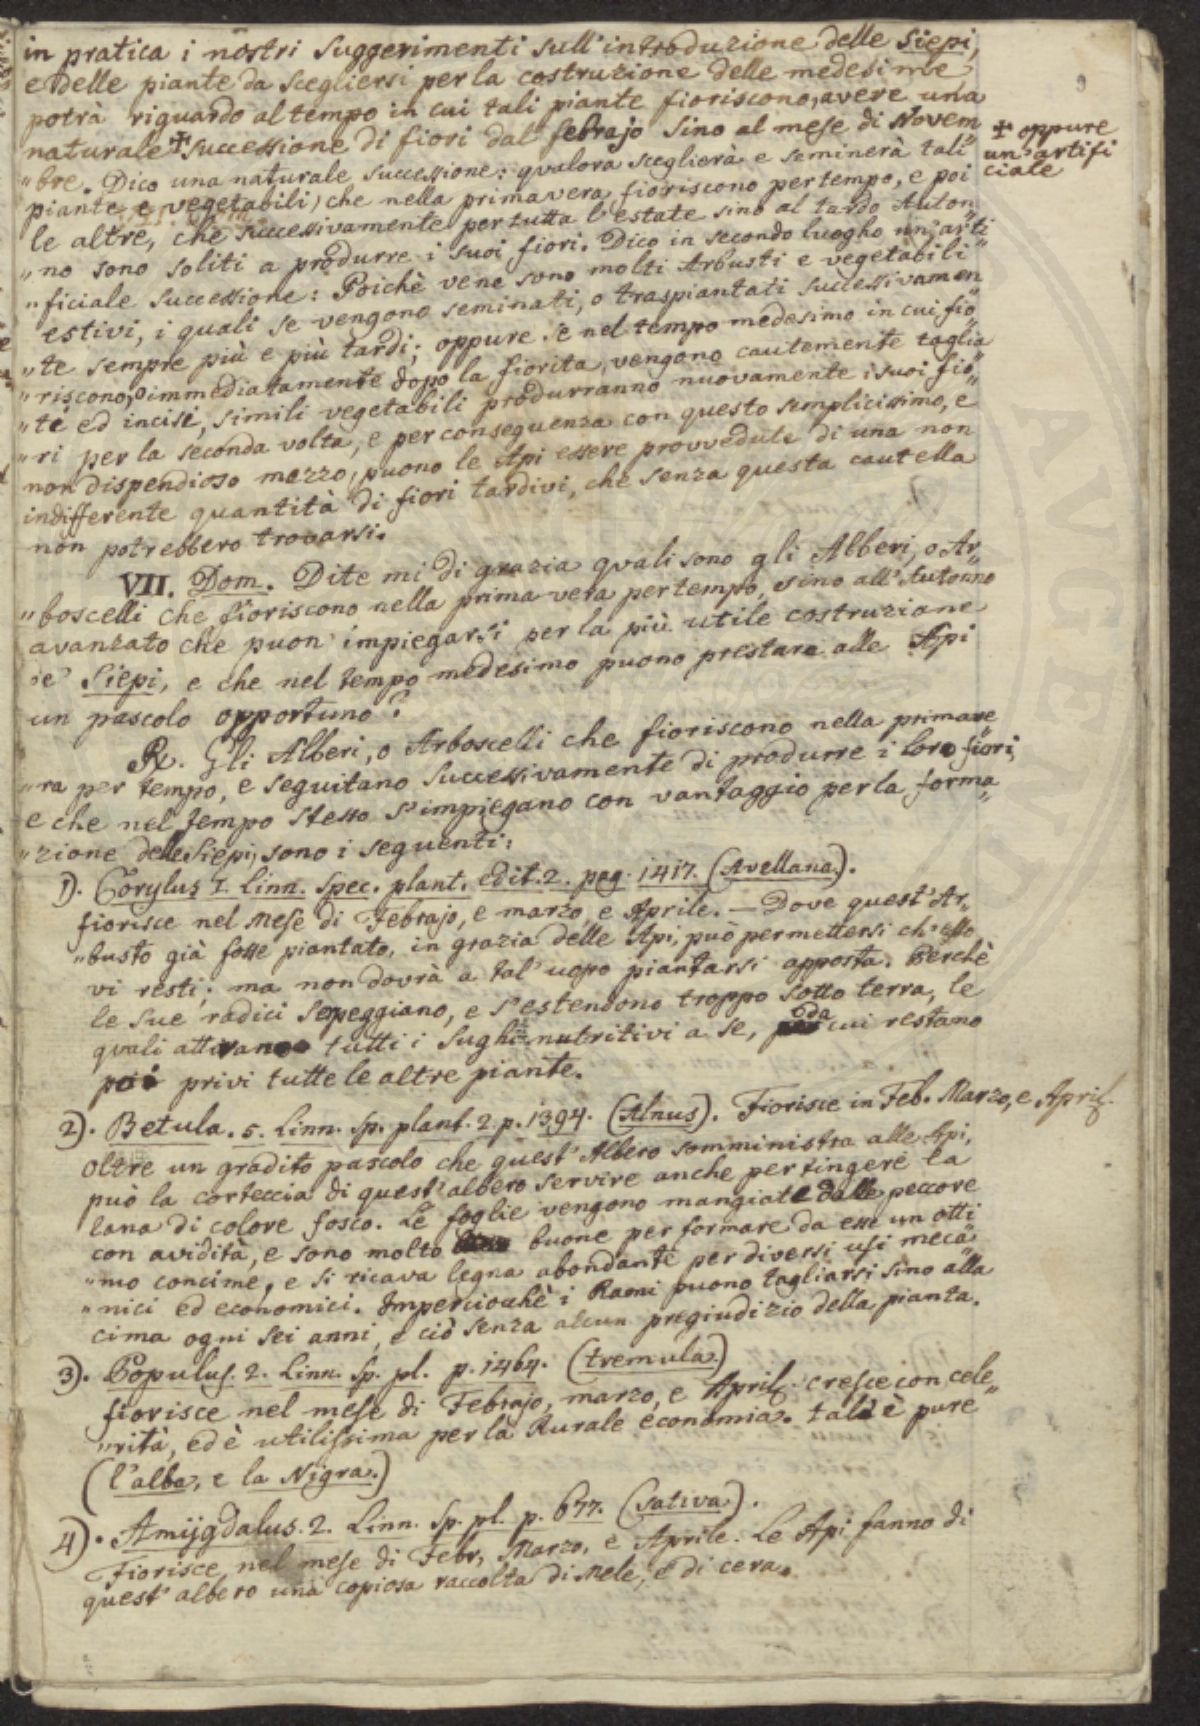 in pratica i nostri suggerimenti sull'introduzione delle Siepi,
e delle piante da scegliersi per la costruzione delle medesime
potrà riguardo al tempo in cui tali piante fioriscono, avere una
naturale ✝ successione di fiori dal febrajo sino al mese di Novem
„bre. Dico una naturale successione: qualora sceglierà e seminerà tali
piante e vegetabili, che nella primavera fioriscono per tempo, e poi
le altre, che successivamente per tutta l'estate sino al tardo Auton„
„no sono soliti a produrre i suoi fiori. Dico in secondo luogho un'arti„
„ficiale successione: Poichè vene sono molti Arbusti e vegetabili
estivi, i quali se vengono seminati, o traspiantati successivamen„
„te sempre più e più tardi; oppure se nel tempo medesimo in cui fio„
„riscono, o immediatamente dopo la fiorita, vengono cautemente taglia„
„ti ed incisi, simili vegetabili produrranno nuovamente i suoi fio„
„ri per la seconda volta, e per conseguenza con questo semplicissimo, e
non dispendioso mezzo, puono le Api essere provvedute di una non
indifferente quantità di fiori tardivi, che senza questa cautella
non potrebbero trovarsi.
✝ oppure
un'artifi
ciale
9
VII. Dom. Dite mi di grazia quali sono gli Alberi, o Ar„
„boscelli che fioriscono nella prima vera per tempo, sino all'Autonno
avanzato che puon' impiegarsi per la più utile costruzione
de' Siepi, e che nel tempo medesimo puono prestare alle Api
un pascolo opportuno?
R. Gli Alberi, o Arboscelli che fioriscono nella primave
„ra per tempo, e seguitano successivamente di produrre i loro fiori,
e che nel tempo stesso s'impiegano con vantaggio per la forma„
„zione delle Siepi, sono i seguenti:
1). Corylus 1. Linn. Spec. plant. edit. 2. pag. 1417. (Avellana).
fiorisce nel Mese di Febrajo, e marzo, e Aprile. — Dove quest'Ar„
„busto già fosse piantato, in grazia delle Api, può permettersi ch'esso
vi resti; ma non dovrà a tal'uopo piantarsi apposta. Perchè
le sue radici sepeggiano, e s'estendono troppo sotto terra, le
quali attirano tutti i sughi nutritivi a se, da cui restano
poi privi tutte le altre piante.
2). Betula. 5. Linn. Sp. plant. 2. p. 1394. (Alnus). Fiorisce in Feb. Marzo, e April.
Oltre un gradito pascolo che quest'Albero somministra alle Api,
può la corteccia di quest'albero servire anche per tingere la
lana di colore fosco. Le foglie vengono mangiate dalle peccore
con avidità, e sono molto buone per formare da esse un otti
„mo concime, e si ricava legna abondante per diversi usi mecà„
„nici ed economici. Imperciochè i Rami puono tagliarsi sino alla
cima ogni sei anni, e ciò senza alcun pregiudizio della pianta.
3). Populus. 2. Linn. Sp. pl. p. 1464. (tremula)
fiorisce nel mese di Febrajo, marzo, e April. cresce con cele„
„rità, ed è utilissima per la Rurale economia. tale è pure
(l'alba, e la Nigra.)
4). Amijgdalus. 2. Linn. Sp. pl. p. 677. (sativa).
Fiorisce nel mese di Febr, Marzo, e Aprile. Le Api fanno di
quest'albero una copiosa raccolta di Mele, e di cera.